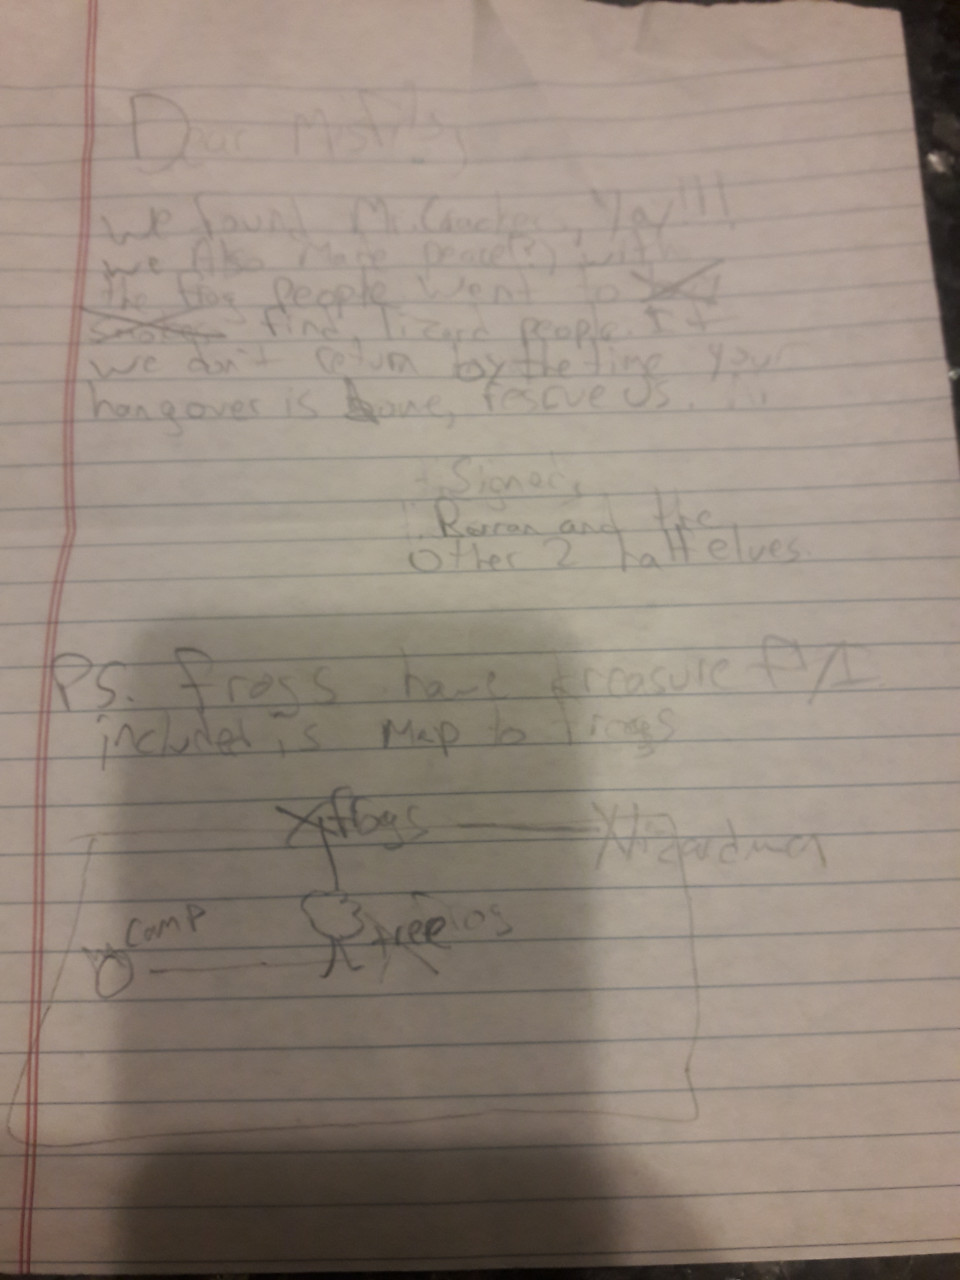 Dear
We found Mr. Yay!!!
we Also Made peace(?) with
the frog people went to
find lizard people. If
we don't return by the time your
hangover is gone, rescue us.
Signed,
and the
other 2 half elves.
PS. frogs have treasure
included is Map to frogs
X frogs X lizardmen
camp
tree